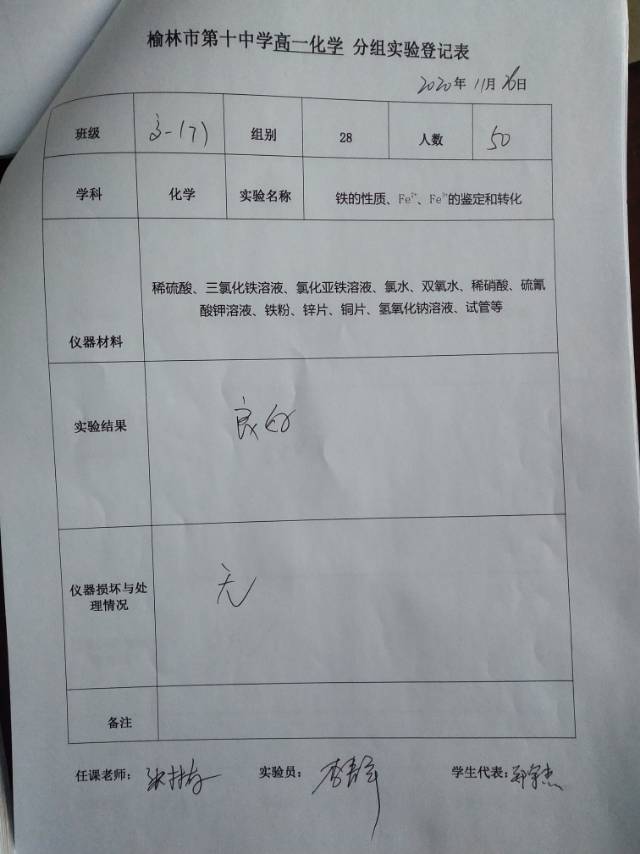 榆林市第十中学高一化学 分组实验登记表
2020年 11月 26日
班级 高一(7) 组别 28 人数 50
学科 化学 实验名称 铁的性质、Fe²⁺、Fe³⁺的鉴定和转化
稀硫酸、三氯化铁溶液、氯化亚铁溶液、氯水、双氧水、稀硝酸、硫氰
酸钾溶液、铁粉、锌片、铜片、氢氧化钠溶液、试管等
仪器材料
实验结果 良好
仪器损坏与处
理情况
无
备注
任课老师： 实验员： 学生代表：